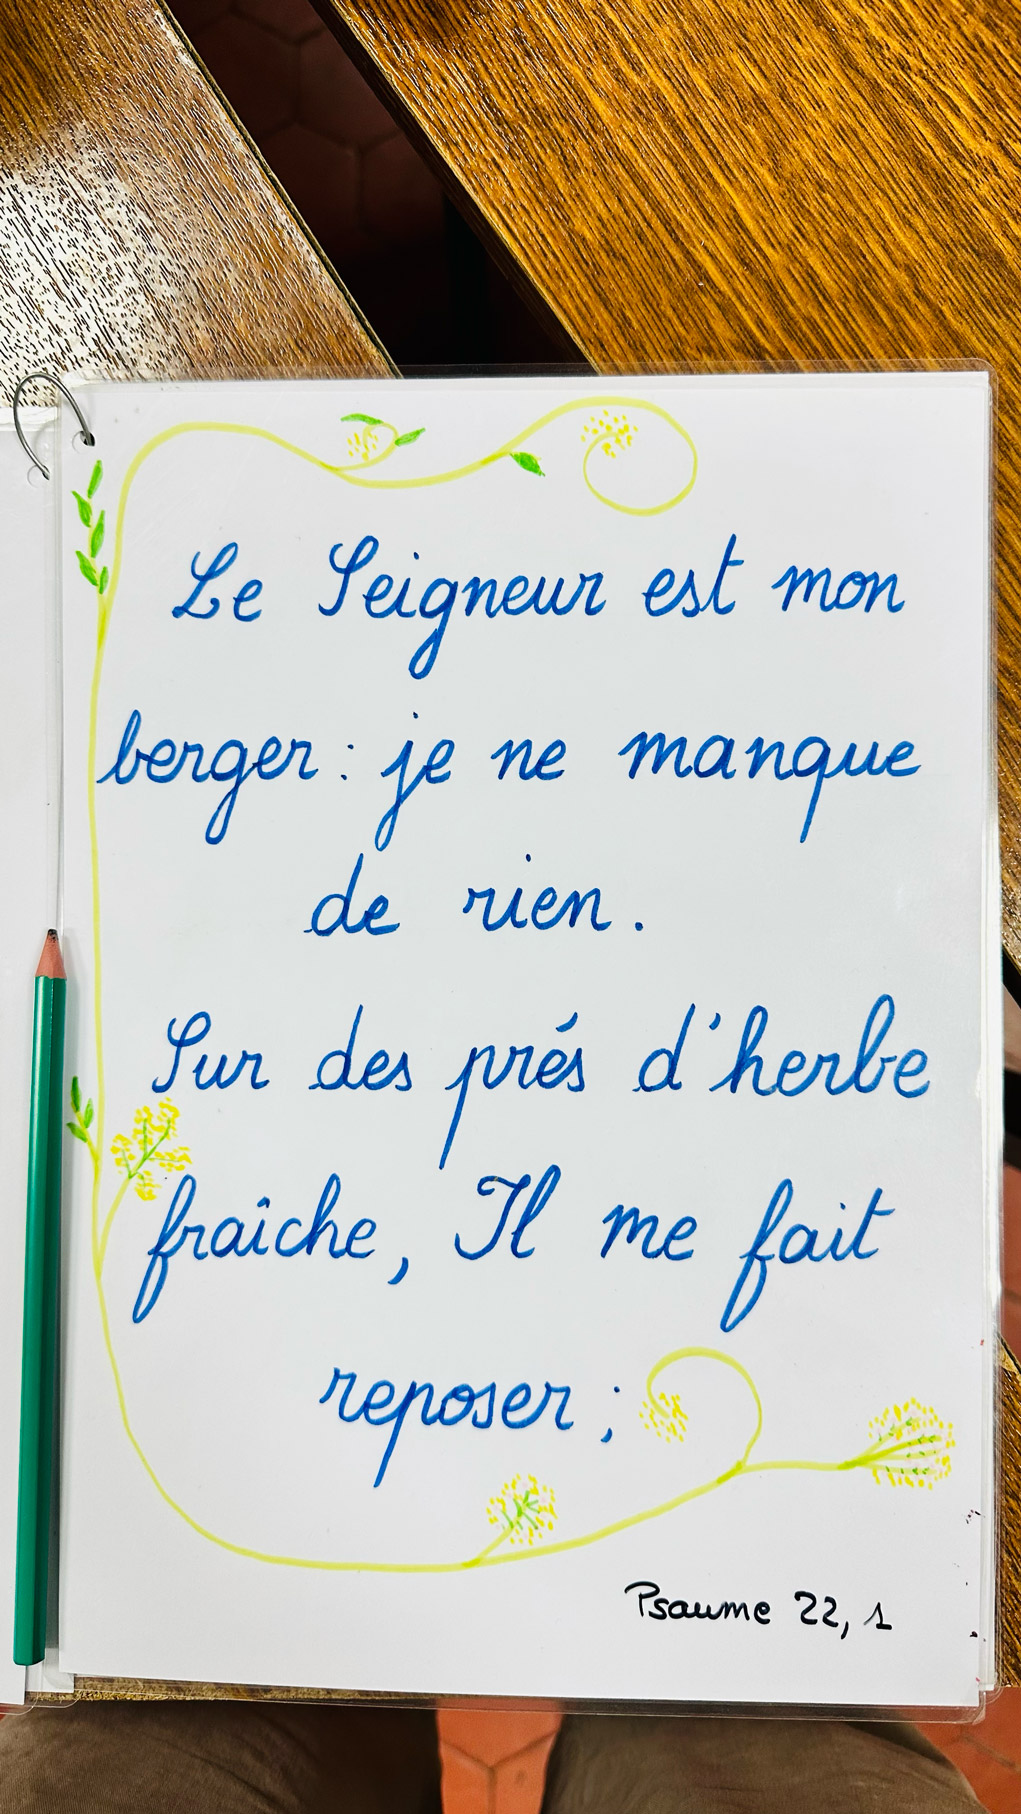 Le Seigneur est mon
berger : je ne manque
de rien.
Sur des prés d'herbe
fraîche, Il me fait
reposer ;
Psaume 22, 1